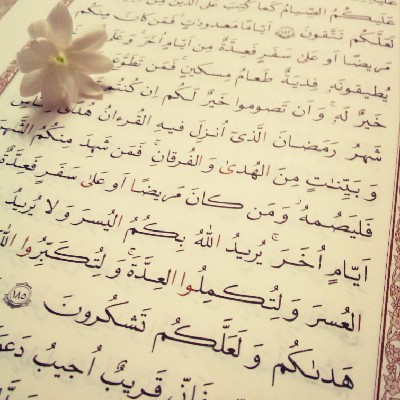 عَلَيْكُمُ الصِّيَامُ كَمَا كُتِبَ عَلَى الَّذِينَ مِن
لَعَلَّكُمْ تَتَّقُونَ ﴿١٨٣﴾ اَيَّامًا مَعْدُودَاتٍ فَمَن كَانَ مِنكُم
مَرِيضًا اَو عَلىٰ سَفَرٍ فَعِدَّةٌ مِن اَيَّامٍ اُخَرَ وَعَلَى
يُطِيقُونَهُ فِديَةٌ طَعَامُ مِسكِينٍ فَمَن تَطَوَّعَ
خَيرٌ لَهُ وَ اَن تَصُومُوا خَيرٌ لَكُم اِن كُنتُم
شَهرُ رَمَضَانَ الَّذىٓ اُنزِلَ فيهِ القُرءانُ هُدًى لِلنَّاسِ
وَ بَيِّنٰتٍ مِنَ الهُدىٰ وَ الفُرقانِ فَمَن شَهِدَ مِنكُمُ الشَّهرَ
فَليَصُمهُ وَ مَن كانَ مَريضًا اَو عَلىٰ سَفَرٍ فَعِدَّةٌ
اَيّامٍ اُخَرَ يُريدُ اللهُ بِكُمُ اليُسرَ وَ لا يُريدُ
العُسرَ وَ لِتُكمِلُوا العِدَّةَ وَ لِتُكَبِّرُوا
هَدىٰكُم وَ لَعَلَّكُم تَشكُرونَ ﴿١٨٥﴾
فَاِنّى قَريبٌ اُجيبُ